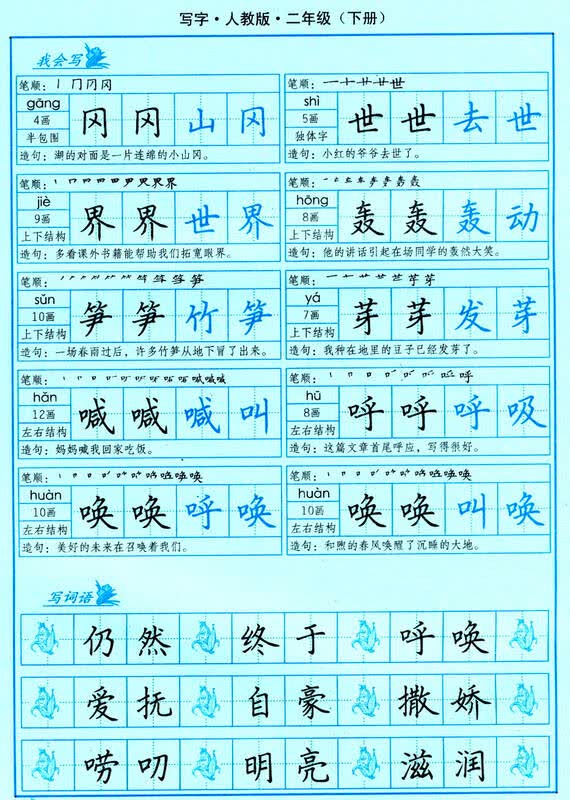 写字·人教版·二年级（下册）
我会写
笔顺：丨冂冈冈
gāng
4画
半包围
冈 冈 山 冈
造句：湖的对面是一片连绵的小山冈。
笔顺：一十廿廿世
shì
5画
独体字
世 世 去 世
造句：小红的爷爷去世了。
笔顺：
jiè
9画
上下结构
界 界 世 界
造句：多看课外书籍能帮助我们拓宽眼界。
笔顺：
hōng
8画
上下结构
轰 轰 轰 动
造句：他的讲话引起在场同学的轰然大笑。
笔顺：
sǔn
10画
上下结构
笋 笋 竹 笋
造句：一场春雨过后，许多竹笋从地下冒了出来。
笔顺：
yá
7画
上下结构
芽 芽 发 芽
造句：我种在地里的豆子已经发芽了。
笔顺：
hǎn
12画
左右结构
喊 喊 喊 叫
造句：妈妈喊我回家吃饭。
笔顺：
hū
8画
左右结构
呼 呼 呼 吸
造句：这篇文章首尾呼应，写得很好。
笔顺：
huàn
10画
左右结构
唤 唤 呼 唤
造句：美好的未来在召唤着我们。
笔顺：
huàn
10画
左右结构
唤 唤 叫 唤
造句：和煦的春风唤醒了沉睡的大地。
写词语
仍 然 终 于 呼 唤
爱 抚 自 豪 撒 娇
唠 叨 明 亮 滋 润